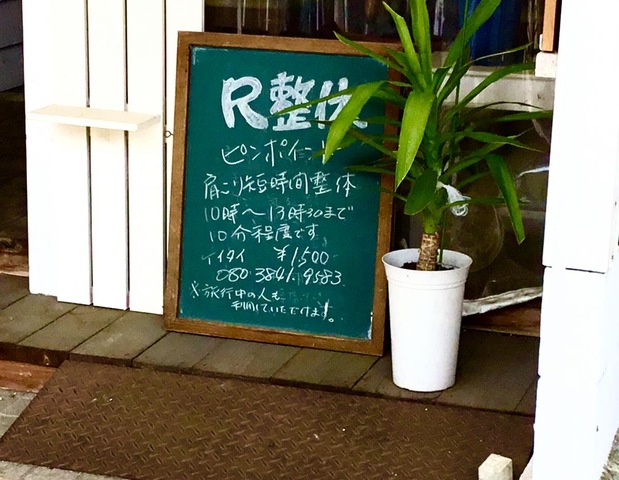 R整体
ピンポイント
肩こり短時間整体
10時〜13時30まで
10分程度です
ケイタイ ¥1,500
080 3841 9583
※旅行中の人も
利用していただけます。